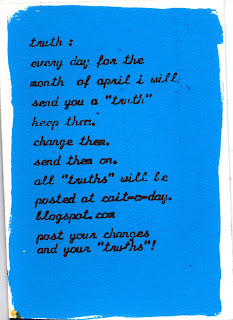 truth :
every day for the
month of april i will
send you a "truth"
keep them.
change them.
send them on.
all "truths" will be
posted at cait-a-day.
blogspot.com
post your changes
and your "truths"!